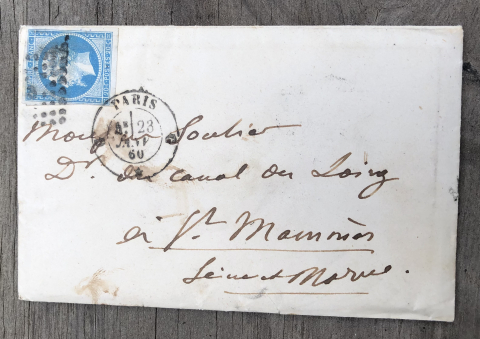 PARIS
23
JANV
60
Monsr Soulié
Dr. du canal du Loing
à St. Mammès
Seine et Marne.